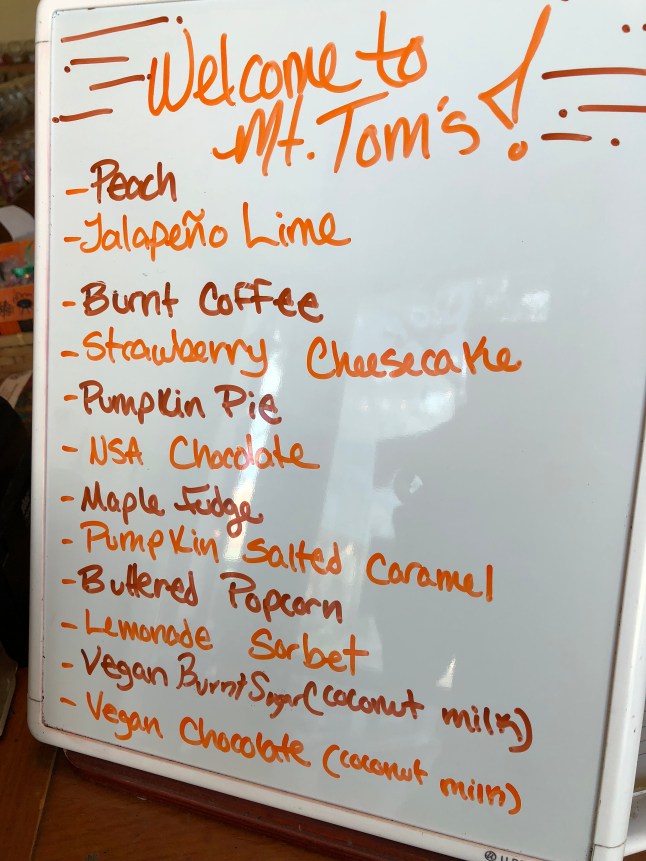 Welcome to
Mt. Tom's!
- Peach
- Jalapeño Lime
- Burnt Coffee
- Strawberry Cheesecake
- Pumpkin Pie
- NSA Chocolate
- Maple Fudge
- Pumpkin Salted Caramel
- Buttered Popcorn
- Lemonade Sorbet
- Vegan Burnt Sugar (coconut milk)
- Vegan Chocolate (coconut milk)